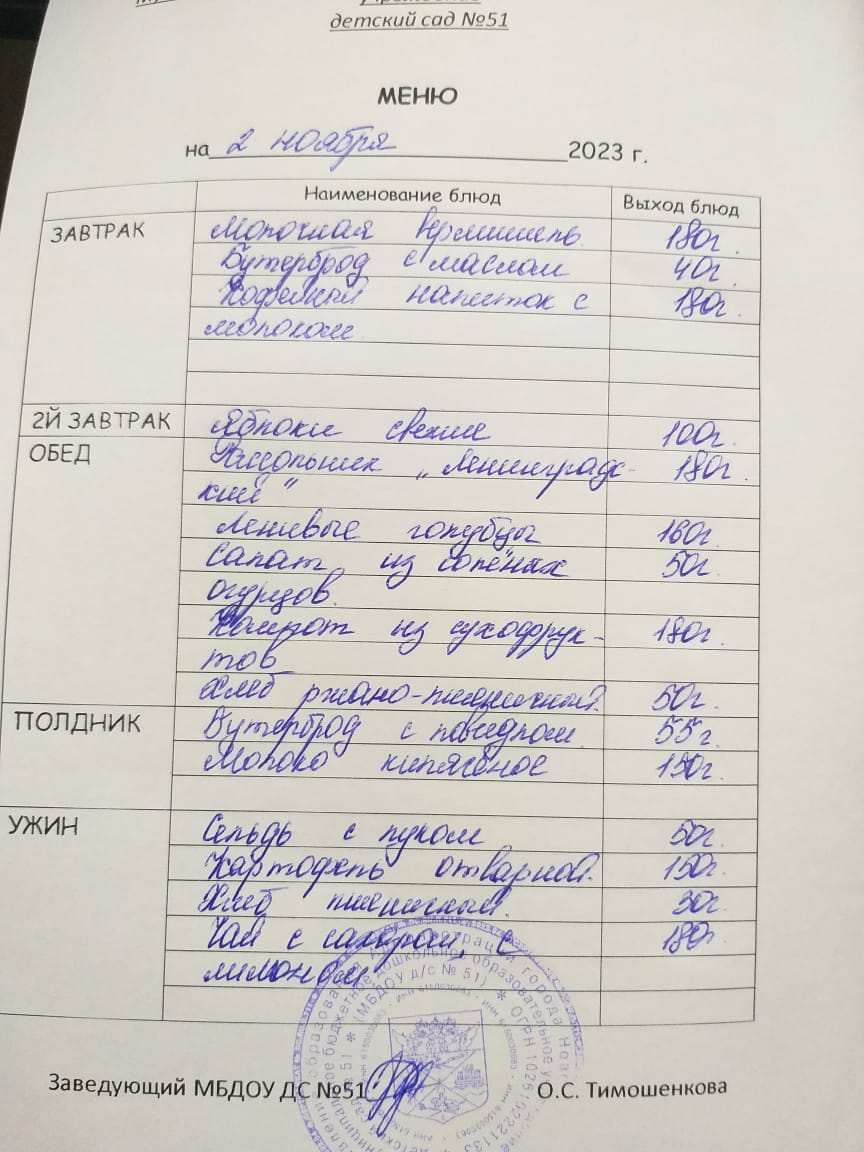 детский сад №51
МЕНЮ
на 2 ноября 2023 г.
Наименование блюд Выход блюд
ЗАВТРАК Молочная вермишель 180г.
Бутерброд с маслом 40г.
Кофейный напиток с 180г.
молоком
2Й ЗАВТРАК Яблоки свежие 100г.
ОБЕД Рассольник „Ленинградс- 180г.
кий"
Ленивые голубцы 160г.
Салат из солёных 50г.
огурцов.
Компот из сухофрук- 180г.
тов
Хлеб ржано-пшеничный. 50г.
ПОЛДНИК Бутерброд с повидлом 55г.
Молоко кипячёное 150г.
УЖИН Сельдь с луком 50г.
Картофель отварной. 150г.
Хлеб пшеничный. 30г.
Чай с сахаром, с 180г
лимоном
(МБДОУ д/с № 51)
Заведующий МБДОУ ДС №51 О.С. Тимошенкова